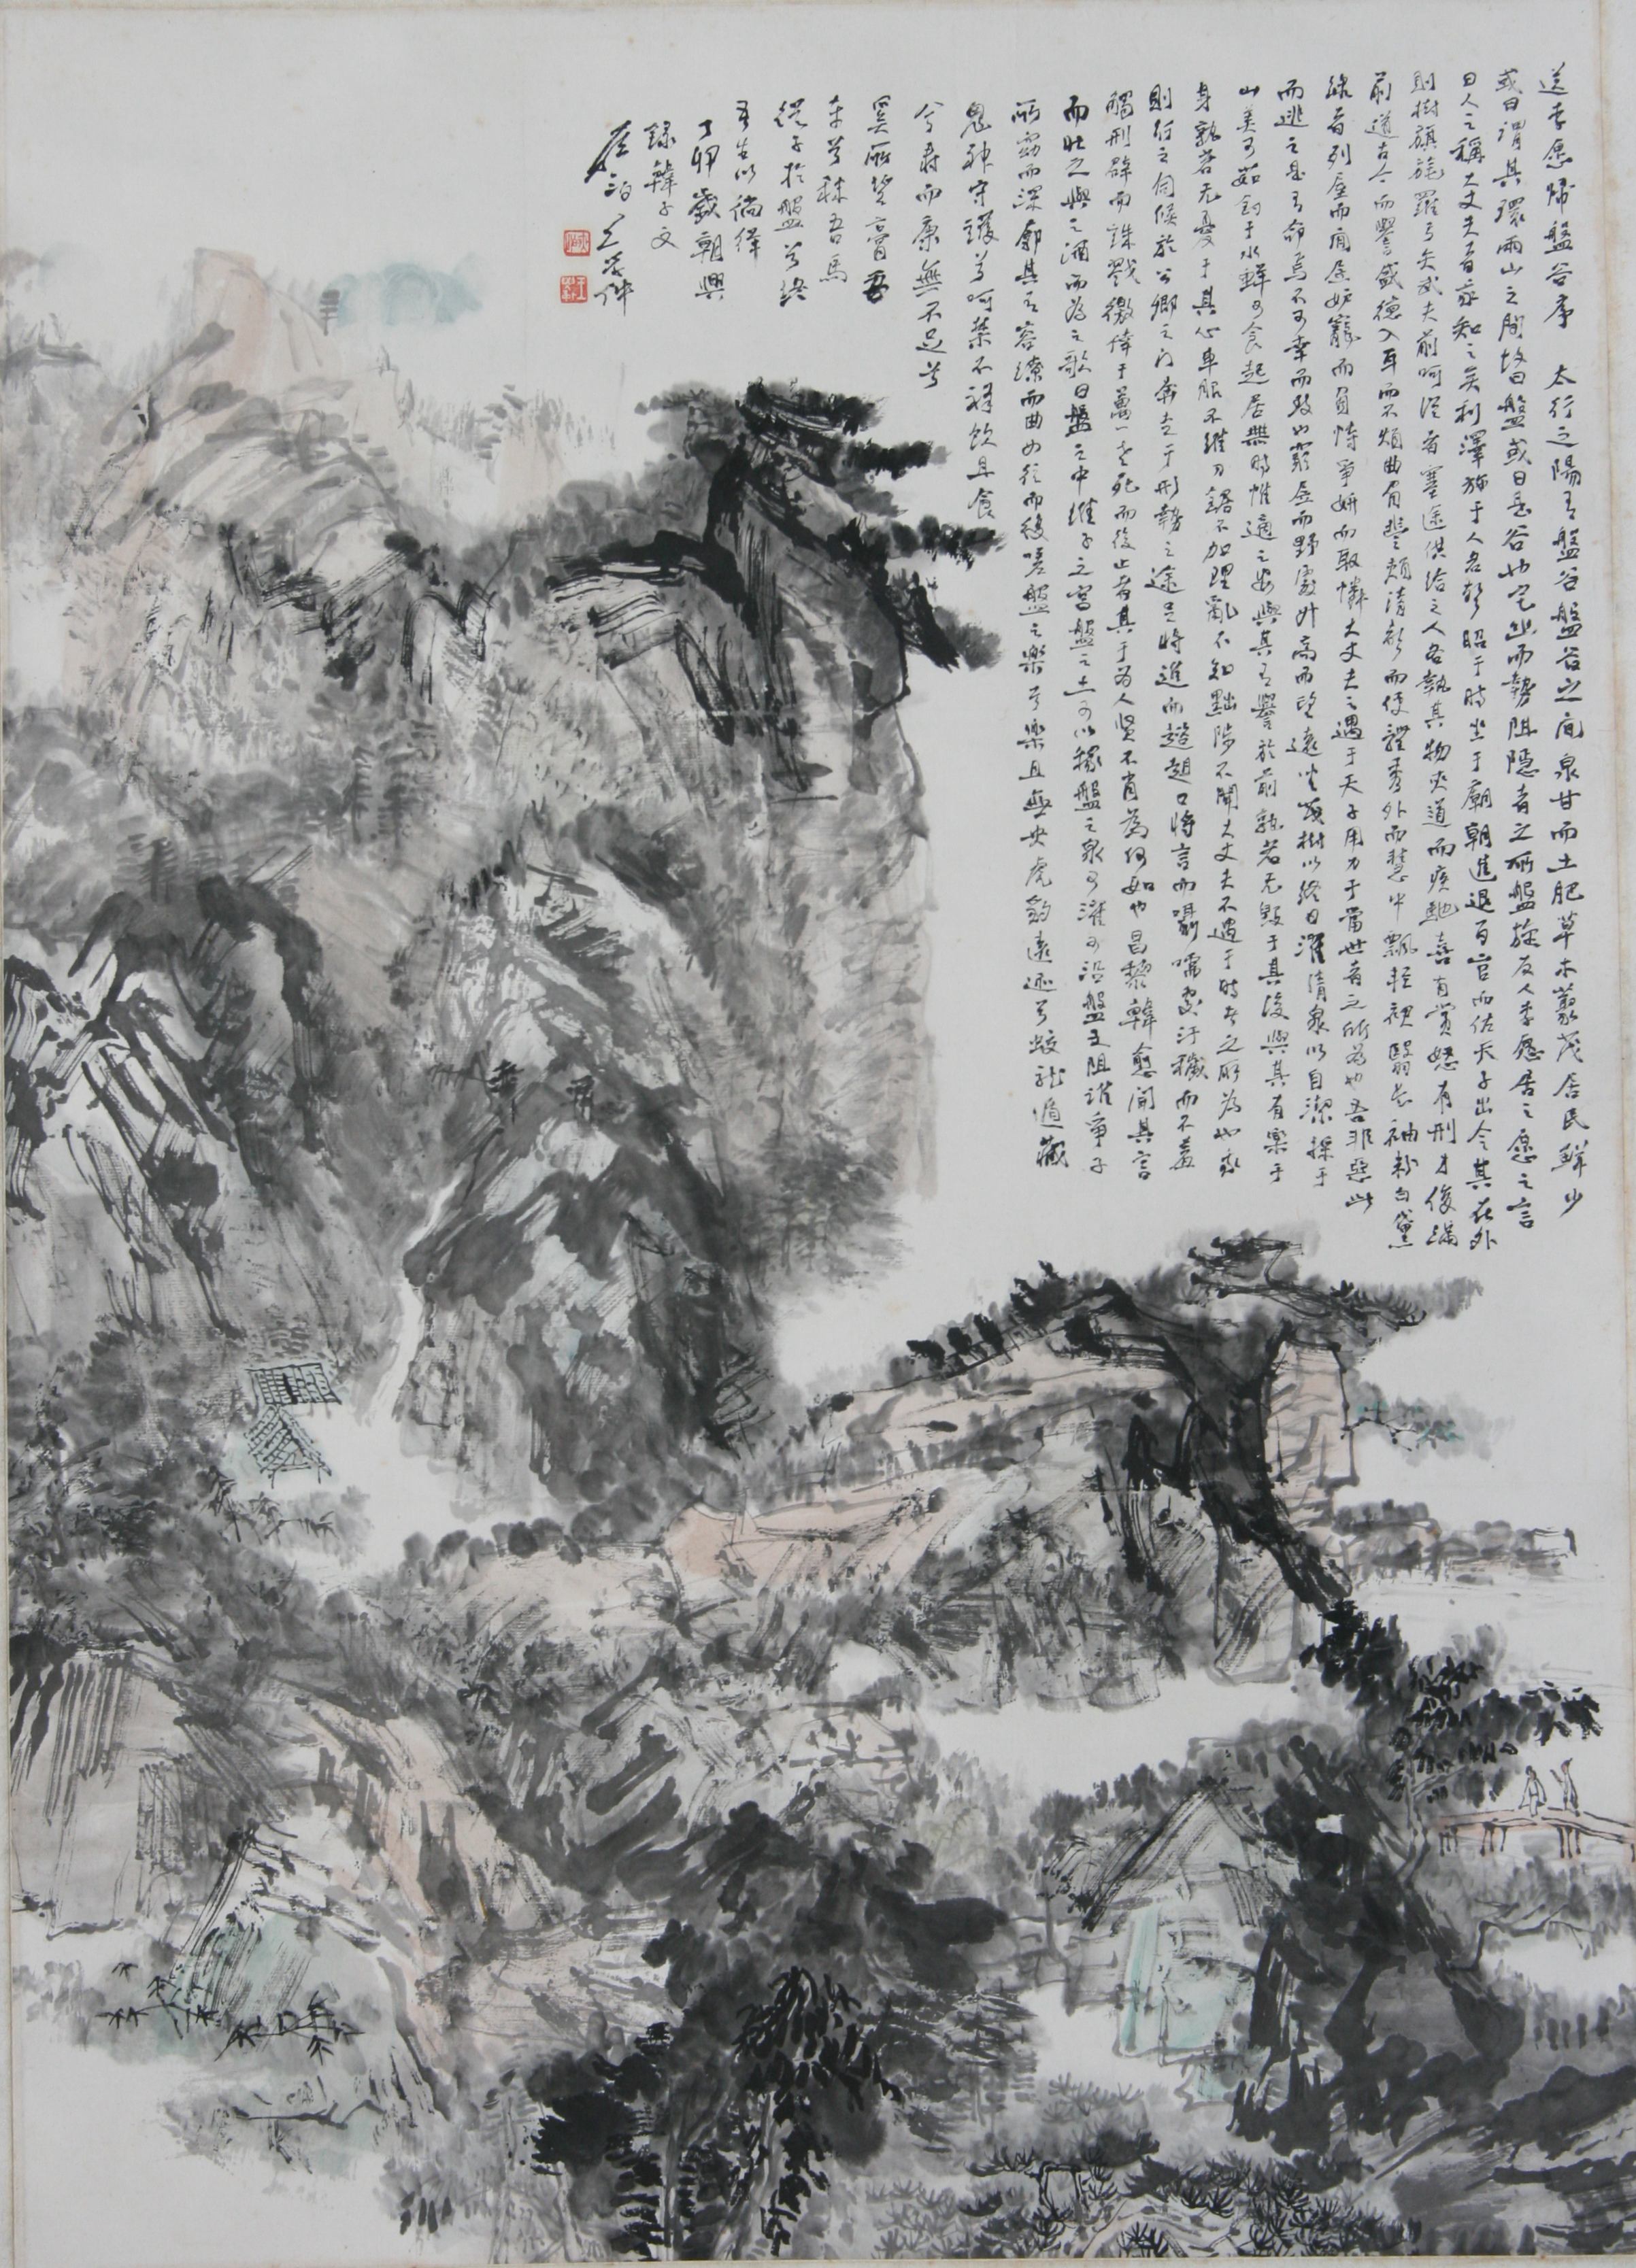 送李愿歸盤谷序　太行之陽有盤谷盤谷之間泉甘而土肥草木叢茂居民鮮少
或曰謂其環兩山之間故曰盤或曰是谷也宅幽而勢阻隱者之所盤旋友人李愿居之愿之言
曰人之稱大丈夫者我知之矣利澤施于人名聲昭于時坐于廟朝進退百官而佐天子出令其在外
則樹旗旄羅弓矢武夫前呵從者塞途供給之人各執其物夾道而疾馳喜有賞怒有刑才俊滿
前道古今而譽盛德入耳而不煩曲眉豐頰清聲而便體秀外而慧中飄輕裾翳長袖粉白黛
綠者列屋而閒居妒寵而負恃爭妍而取憐大丈夫之遇于天子用力于當世者之所為也吾非惡此
而逃之是有命焉不可幸而致也窮居而野處升高而望遠坐茂樹以終日濯清泉以自潔採于
山美可茹釣于水鮮可食起居無時惟適之安與其有譽於前孰若无毀于其後與其有樂于
身孰若无憂于其心車服不維刀鋸不加理亂不知黜陟不聞大丈夫不遇于時者之所為也我
則行之伺候於公卿之门奔走于形勢之途足將進而趑趄口將言而囁嚅處汙穢而不羞
觸刑辟而誅戮徼倖于萬一老死而後止者其于為人贤不肖為何如也昌黎韓愈聞其言
而壯之與之酒而為之歌曰盤之中維子之宮盤之土可以稼盤之泉可濯可沿盤之阻誰爭子
所窈而深廓其有容繚而曲如往而復嗟盤之樂兮樂且無央虎豹遠迹兮蛟龍遁藏
鬼神守護兮呵禁不祥飲且食
兮壽而康無不足兮
奚所望膏吾
車兮秣吾馬
從子於盤兮終
吾生以徜徉
丁卯歲朝興
錄韓子文
夜泊王學仲